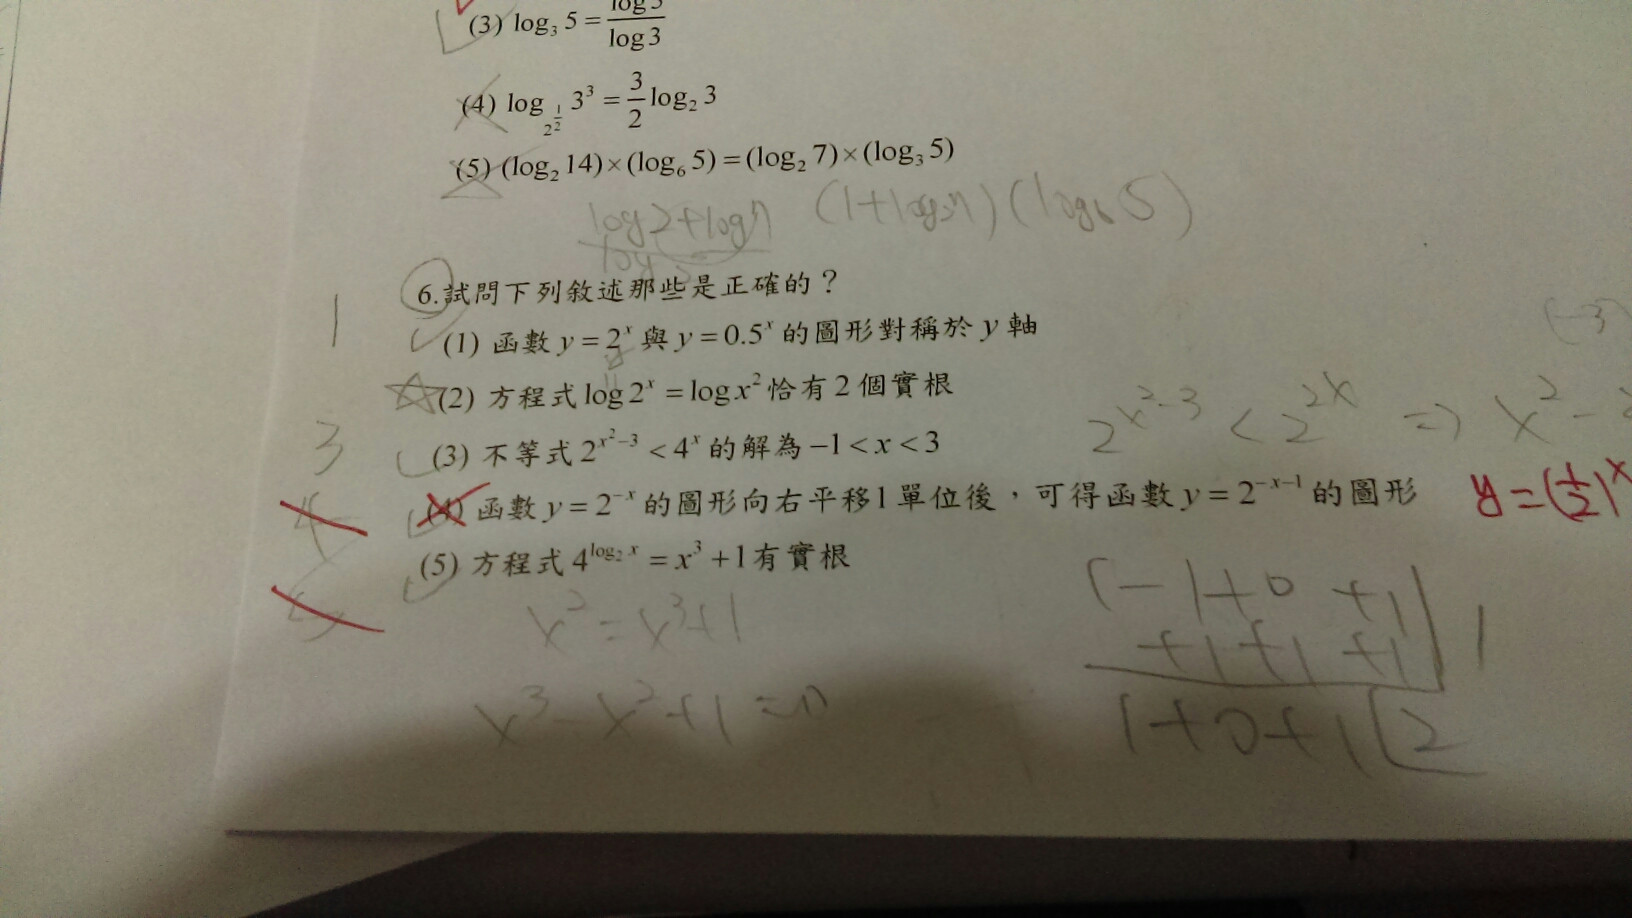 (3) log₃ 5 = log5 / log3
(4) log_{2^{1/2}} 3³ = 3/2 log₂ 3
(5) (log₂ 14)×(log₆ 5) = (log₂ 7)×(log₃ 5)
log2+log7 (1+log₂7)(log₆5)
1
6.試問下列敘述那些是正確的？
(1) 函數 y = 2ˣ 與 y = 0.5ˣ 的圖形對稱於 y 軸
(-3)
(2) 方程式 log 2ˣ = log x² 恰有 2 個實根
2^{x²-3} < 2^{2x} => x² -
3
(3) 不等式 2^{x²-3} < 4ˣ 的解為 -1 < x < 3
4
(4) 函數 y = 2^{-x} 的圖形向右平移1單位後，可得函數 y = 2^{-x-1} 的圖形
y = (1/2)ˣ
(5) 方程式 4^{log₂ x} = x³ + 1 有實根
5
x² = x³+1
x³ - x² + 1 =
1 -1 + 0 +1 | 1
+1 +1 +1
1+0+1 | 2